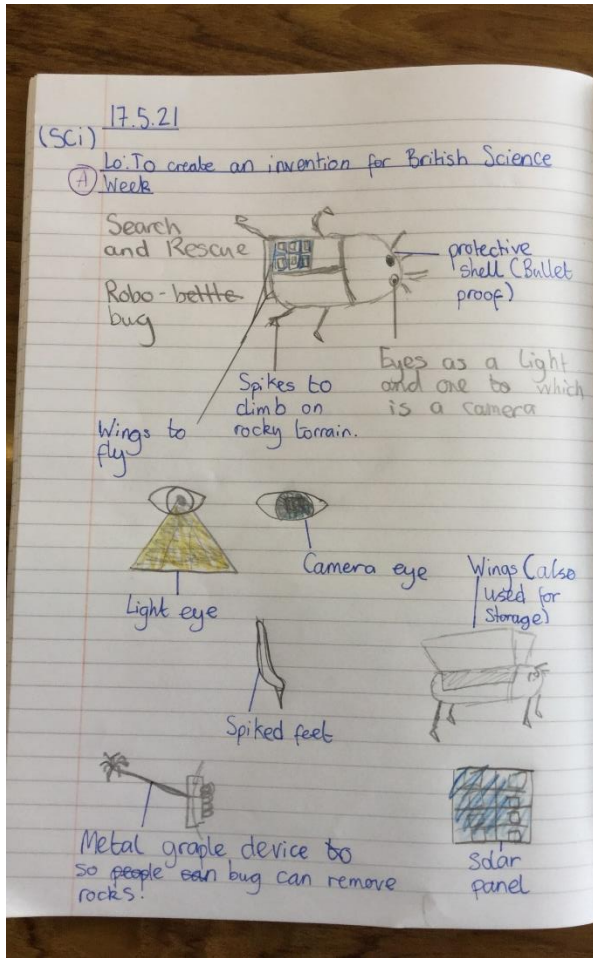 17.5.21
(SCi)
Lo: To create an invention for British Science
A
Week
Search
and Rescue
Robo-bettte
bug
protective
shell (Bullet
proof)
Eyes as a light
and one to which
is a camera
Spikes to
climb on
rocky torrain.
Wings to
fly
Camera eye
Light eye
Wings (also
used for
Storage)
Spiked feet
Metal graple device to
so people can bug can remove
rocks.
Solar
panel